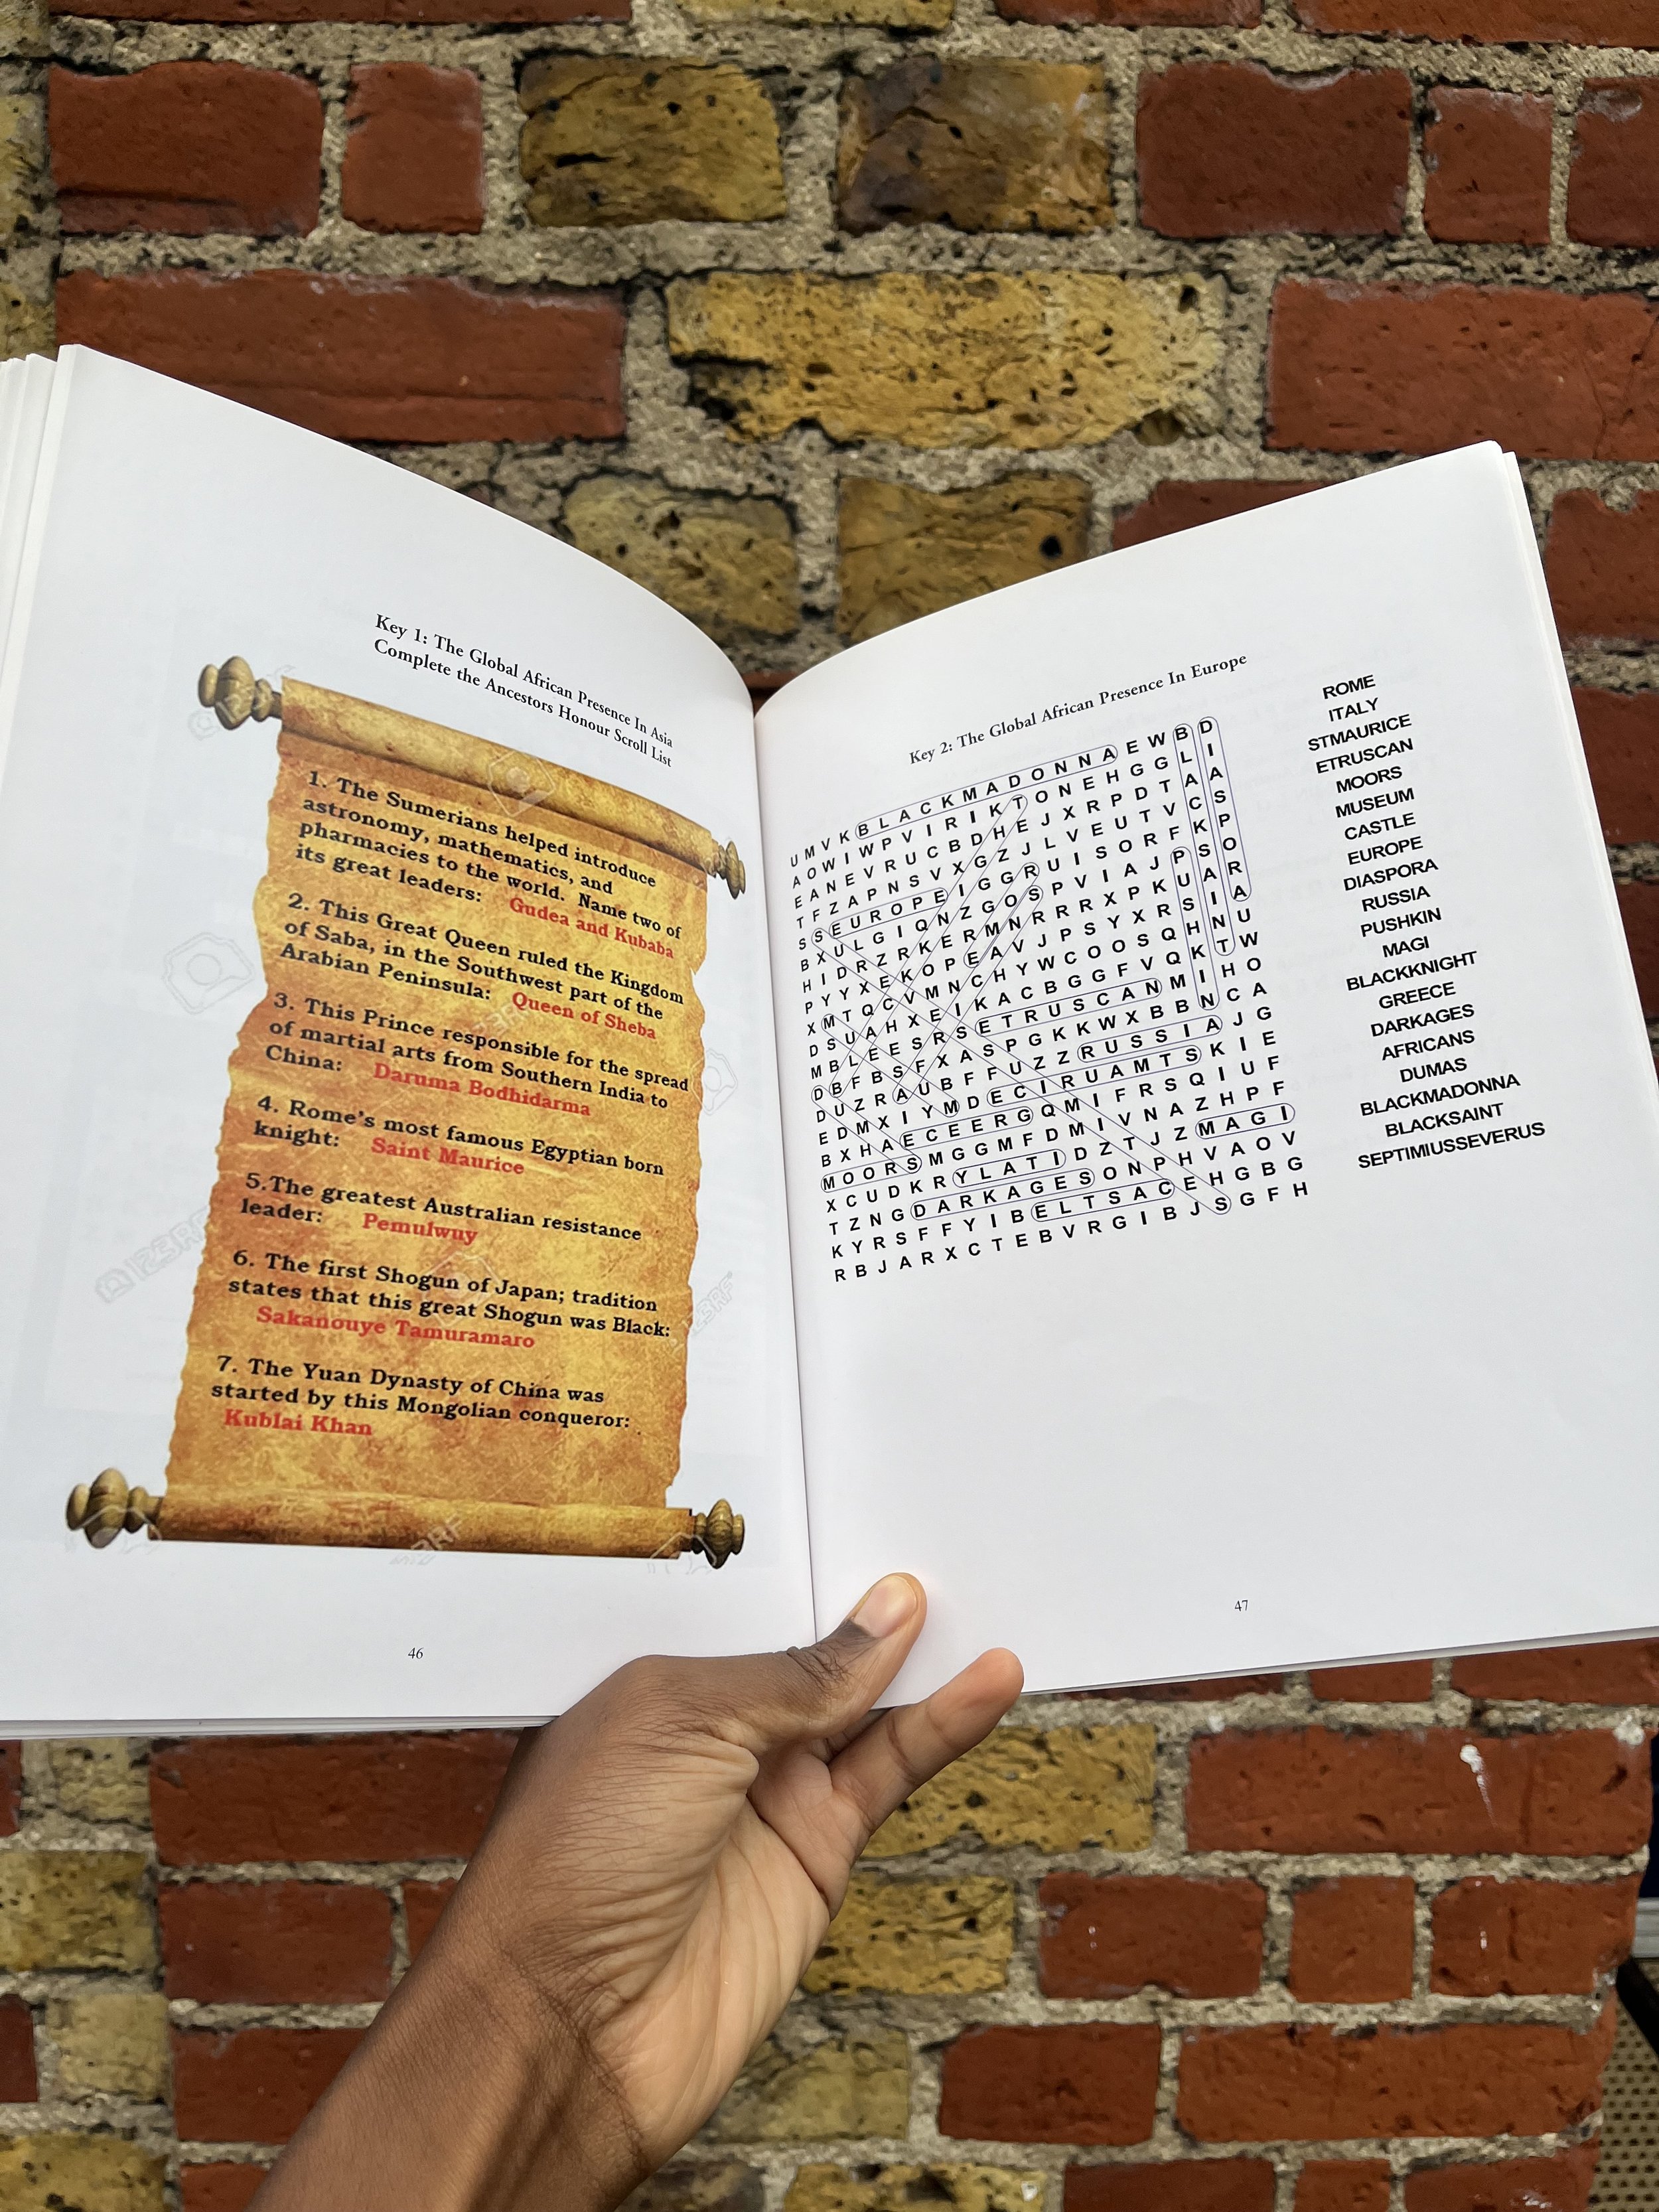 Key 1: The Global African Presence In Asia
Complete the Ancestors Honour Scroll List
1. The Sumerians helped introduce
astronomy, mathematics, and
pharmacies to the world. Name two of
its great leaders: Gudea and Kubaba
2. This Great Queen ruled the Kingdom
of Saba, in the Southwest part of the
Arabian Peninsula: Queen of Sheba
3. This Prince responsible for the spread
of martial arts from Southern India to
China: Daruma Bodhidarma
4. Rome's most famous Egyptian born
knight: Saint Maurice
5.The greatest Australian resistance
leader: Pemulwuy
6. The first Shogun of Japan; tradition
states that this great Shogun was Black:
Sakanouye Tamuramaro
7. The Yuan Dynasty of China was
started by this Mongolian conqueror:
Kublai Khan
46
Key 2: The Global African Presence In Europe
U M V K B L A C K M A D O N N A E W B D
A O W I W P V I R I K T O N E H G G L I
E A N E V R U C B D H E J X R P D T A A
T F Z A P N S V X G Z J L V E U T V C S
S S E U R O P E I G G R U I S O R F K P
B X U L G I Q N Z G O S P V I A J P S O
H I D R Z R K E R M N R R R X P K U A R
P Y Y X E K O P E A V J P S Y X R S I A
X M T Q C V M N C H Y W C O O S Q H N U
D S U A H X E I K A C B G G F V Q K T W
M B L E E S R S E T R U S C A N M I H O
D B F B S F X A S P G K K W X B B N C A
D U Z R A U B F F U Z Z R U S S I A J G
E D M X I Y M D E C I R U A M T S K I E
B X H A E C E E R G Q M I F R S Q I U F
M O O R S M G G M F D M I V N A Z H P F
X C U D K R Y L A T I D Z T J Z M A G I
T Z N G D A R K A G E S O N P H V A O V
K Y R S F F Y I B E L T S A C E H G B G
R B J A R X C T E B V R G I B J S G F H
ROME
ITALY
STMAURICE
ETRUSCAN
MOORS
MUSEUM
CASTLE
EUROPE
DIASPORA
RUSSIA
PUSHKIN
MAGI
BLACKKNIGHT
GREECE
DARKAGES
AFRICANS
DUMAS
BLACKMADONNA
BLACKSAINT
SEPTIMIUSSEVERUS
47